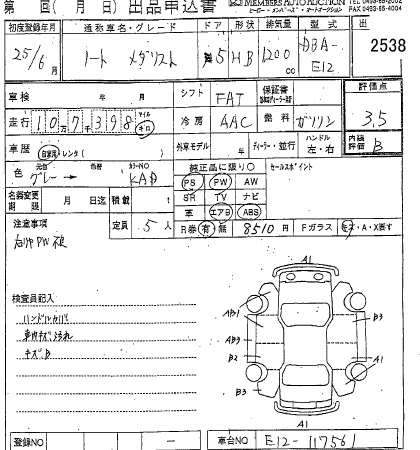 第 回( 月 日) 出品申込書 MEMBERS AUTO AUCTION
FAX 0493-65-2004
初度登録年月 通称車名・グレード ドア 形状 排気量 型式 出
25/6 月 ノート メダリスト 5 HB 1200 cc DBA-E12 2538
車検 年 月 シフト FAT 保証書 評価点
走行 107398 マイル キロ 冷房 AAC 燃料 ガソリン 3.5
車歴 自家用・レンタ( ) 外車モデル 年 ディーラー・並行 ハンドル 左・右 内装評価 B
色 元色 グレー → カラーNO KAD 純正品に限り○ セールスポイント
PS PW AW
名義変更期限 月 日迄 積載 t SR TV ナビ
定員 5人 革 エアB ABS
注意事項 R券 有 無 8510円 Fガラス ・A・X要す
検査員記入
ハンドルカバー
キズB
A1
AB1 B3
AB3
B2 A1
B3 B3
A1
登録NO ー 車台NO E12-117561